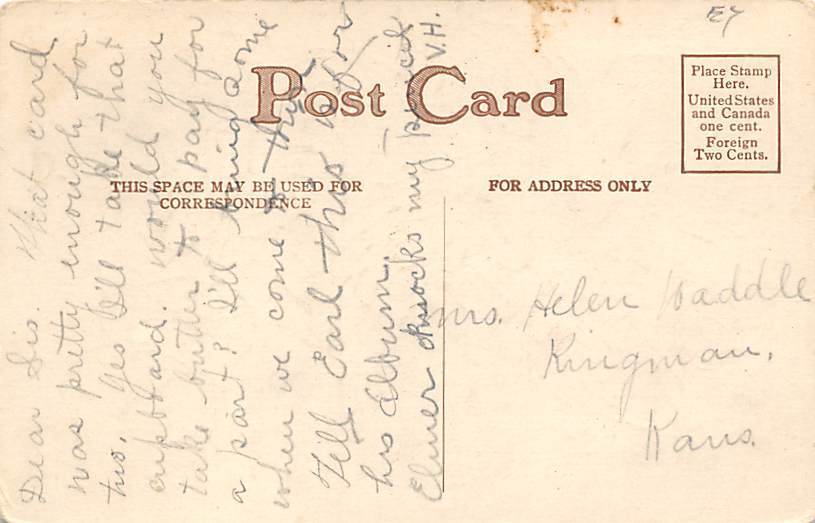 E7
Post Card
Place Stamp
Here.
United States
and Canada
one cent.
Foreign
Two Cents.
THIS SPACE MAY BE USED FOR
CORRESPONDENCE
FOR ADDRESS ONLY
Dear Sis. That card
was pretty enough for
two. Yes I'll take that
cupboard. would you
take butter to pay for
a part? I'll bring some
when we come
Tell Earl this is for
his album.
Elmer my
V.H.
Mrs. Helen Waddle
Kingman,
Kans.